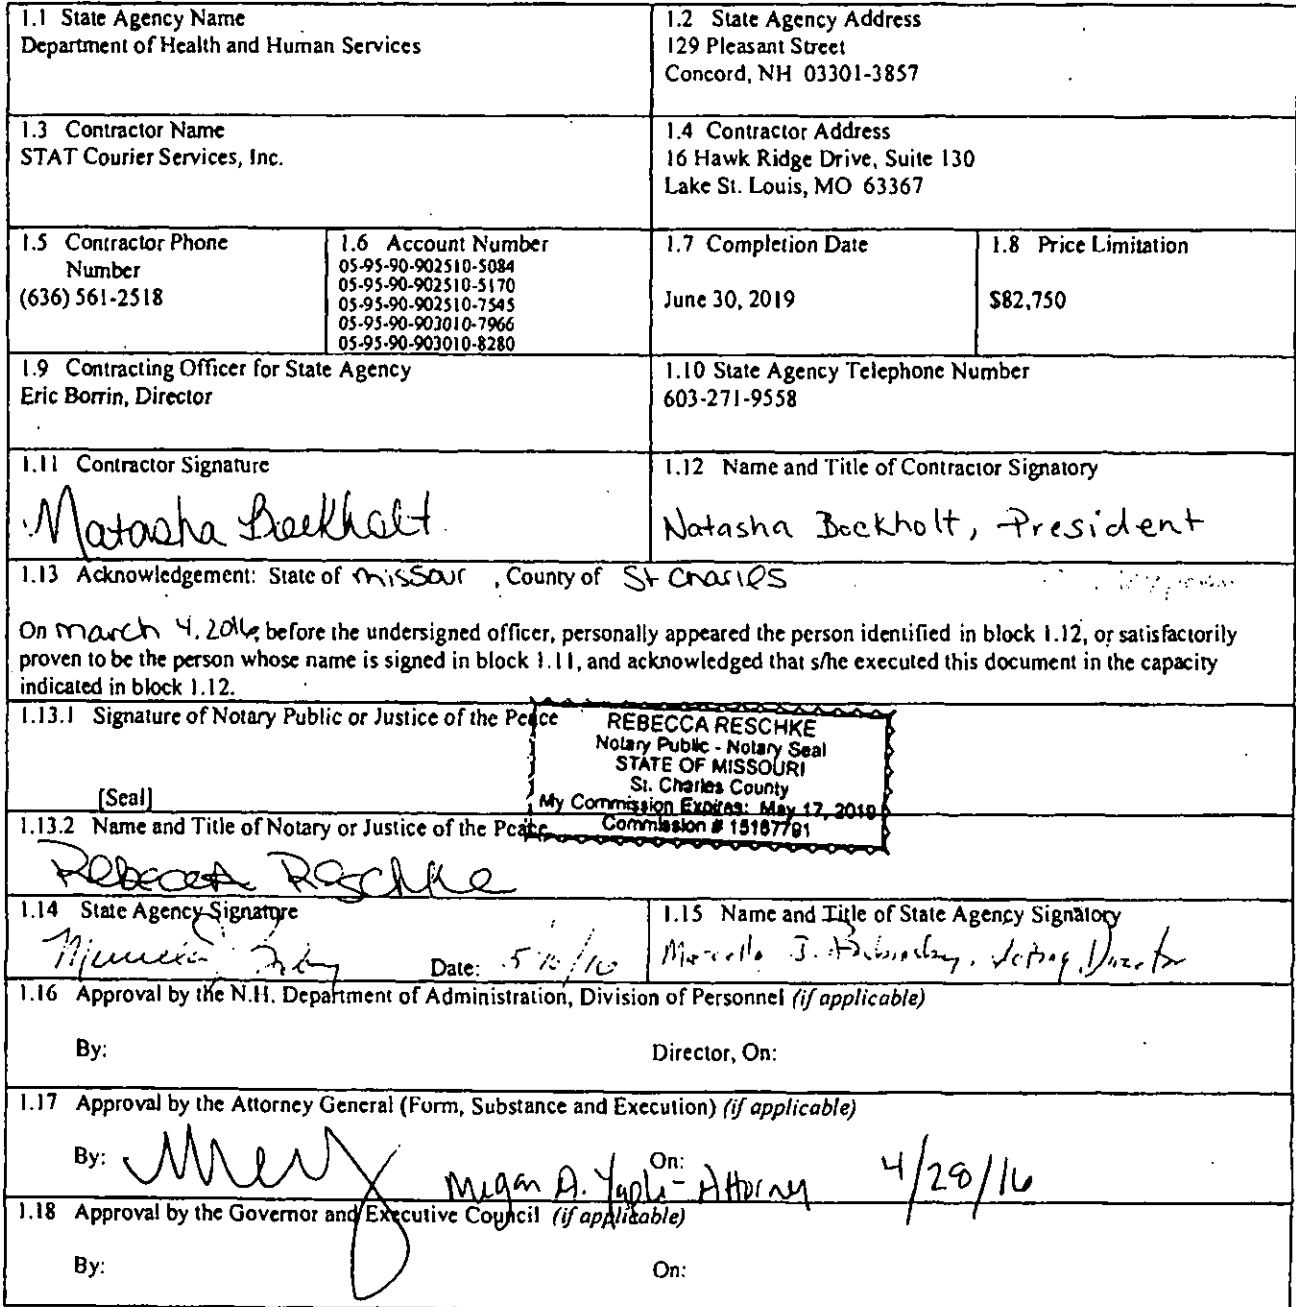 1.1 State Agency Name
Department of Health and Human Services
1.2 State Agency Address
129 Pleasant Street
Concord, NH 03301-3857
1.3 Contractor Name
STAT Courier Services, Inc.
1.4 Contractor Address
16 Hawk Ridge Drive, Suite 130
Lake St. Louis, MO 63367
1.5 Contractor Phone
Number
(636) 561-2518
1.6 Account Number
05-95-90-902510-5084
05-95-90-902510-5170
05-95-90-902510-7545
05-95-90-903010-7966
05-95-90-903010-8280
1.7 Completion Date
June 30, 2019
1.8 Price Limitation
$82,750
1.9 Contracting Officer for State Agency
Eric Borrin, Director
1.10 State Agency Telephone Number
603-271-9558
1.11 Contractor Signature
Natasha Boekholt
1.12 Name and Title of Contractor Signatory
Natasha Boekholt, President
1.13 Acknowledgement: State of missour , County of St Charles
On march 4, 2016, before the undersigned officer, personally appeared the person identified in block 1.12, or satisfactorily
proven to be the person whose name is signed in block 1.11, and acknowledged that s/he executed this document in the capacity
indicated in block 1.12.
1.13.1 Signature of Notary Public or Justice of the Peace
[Seal]
REBECCA RESCHKE
Notary Public - Notary Seal
STATE OF MISSOURI
St. Charles County
My Commission Expires: May 17, 2019
Commission # 15167791
1.13.2 Name and Title of Notary or Justice of the Peace
Rebecca Reschke
1.14 State Agency Signature
Date:
1.15 Name and Title of State Agency Signatory
Marcella J. Acting Director
1.16 Approval by the N.H. Department of Administration, Division of Personnel (if applicable)
By: Director, On:
1.17 Approval by the Attorney General (Form, Substance and Execution) (if applicable)
By: On:
Megan A. Yaple - Attorney 4/28/16
1.18 Approval by the Governor and Executive Council (if applicable)
By: On: